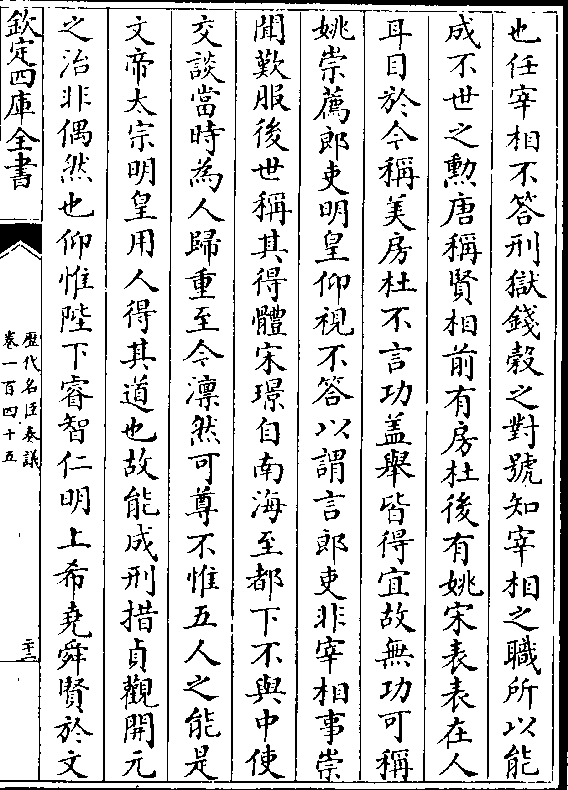 也任宰相不答刑獄錢穀之對號知宰相之職所以能
成不世之勲唐稱賢相前有房杜後有姚宋表表在人
耳目於今稱美房杜不言功盖舉皆得宜故無功可稱
姚崇薦郎吏明皇仰視不答以謂言郎吏非宰相事崇
聞歎服後世稱其得體宋璟自南海至都下不與中使
交談當時為人歸重至今凛然可尊不惟五人之能是
文帝太宗明皇用人得其道也故能成刑措貞觀開元
之治非偶然也仰惟陛下睿智仁明上希堯舜賢於文
欽定四庫全書
歴代名臣奏議
卷一百四十五
二十二